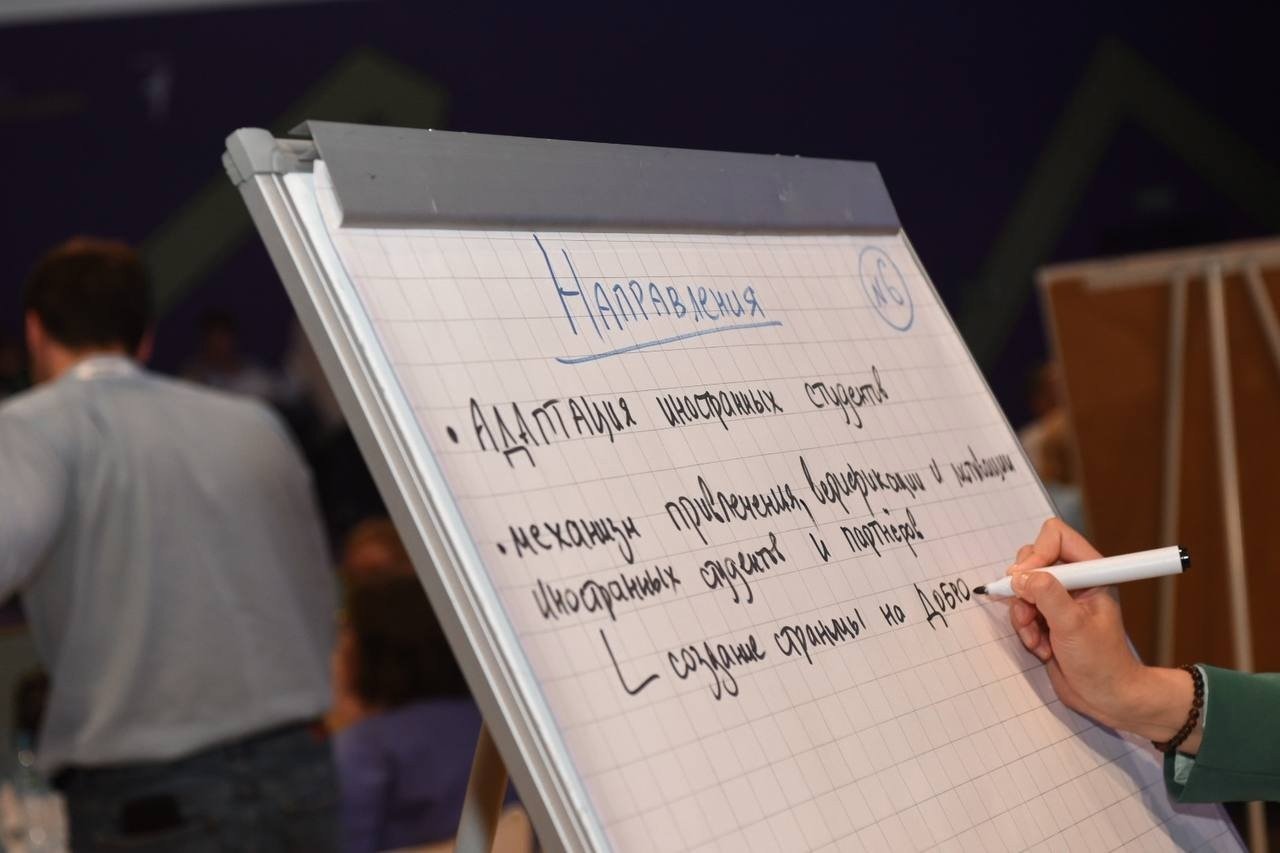 Направления
№6
• Адаптация иностранных студентов
• механизм привлечения, верификации и мотивации
иностранных студентов и партнёров
создание страницы на Добро.